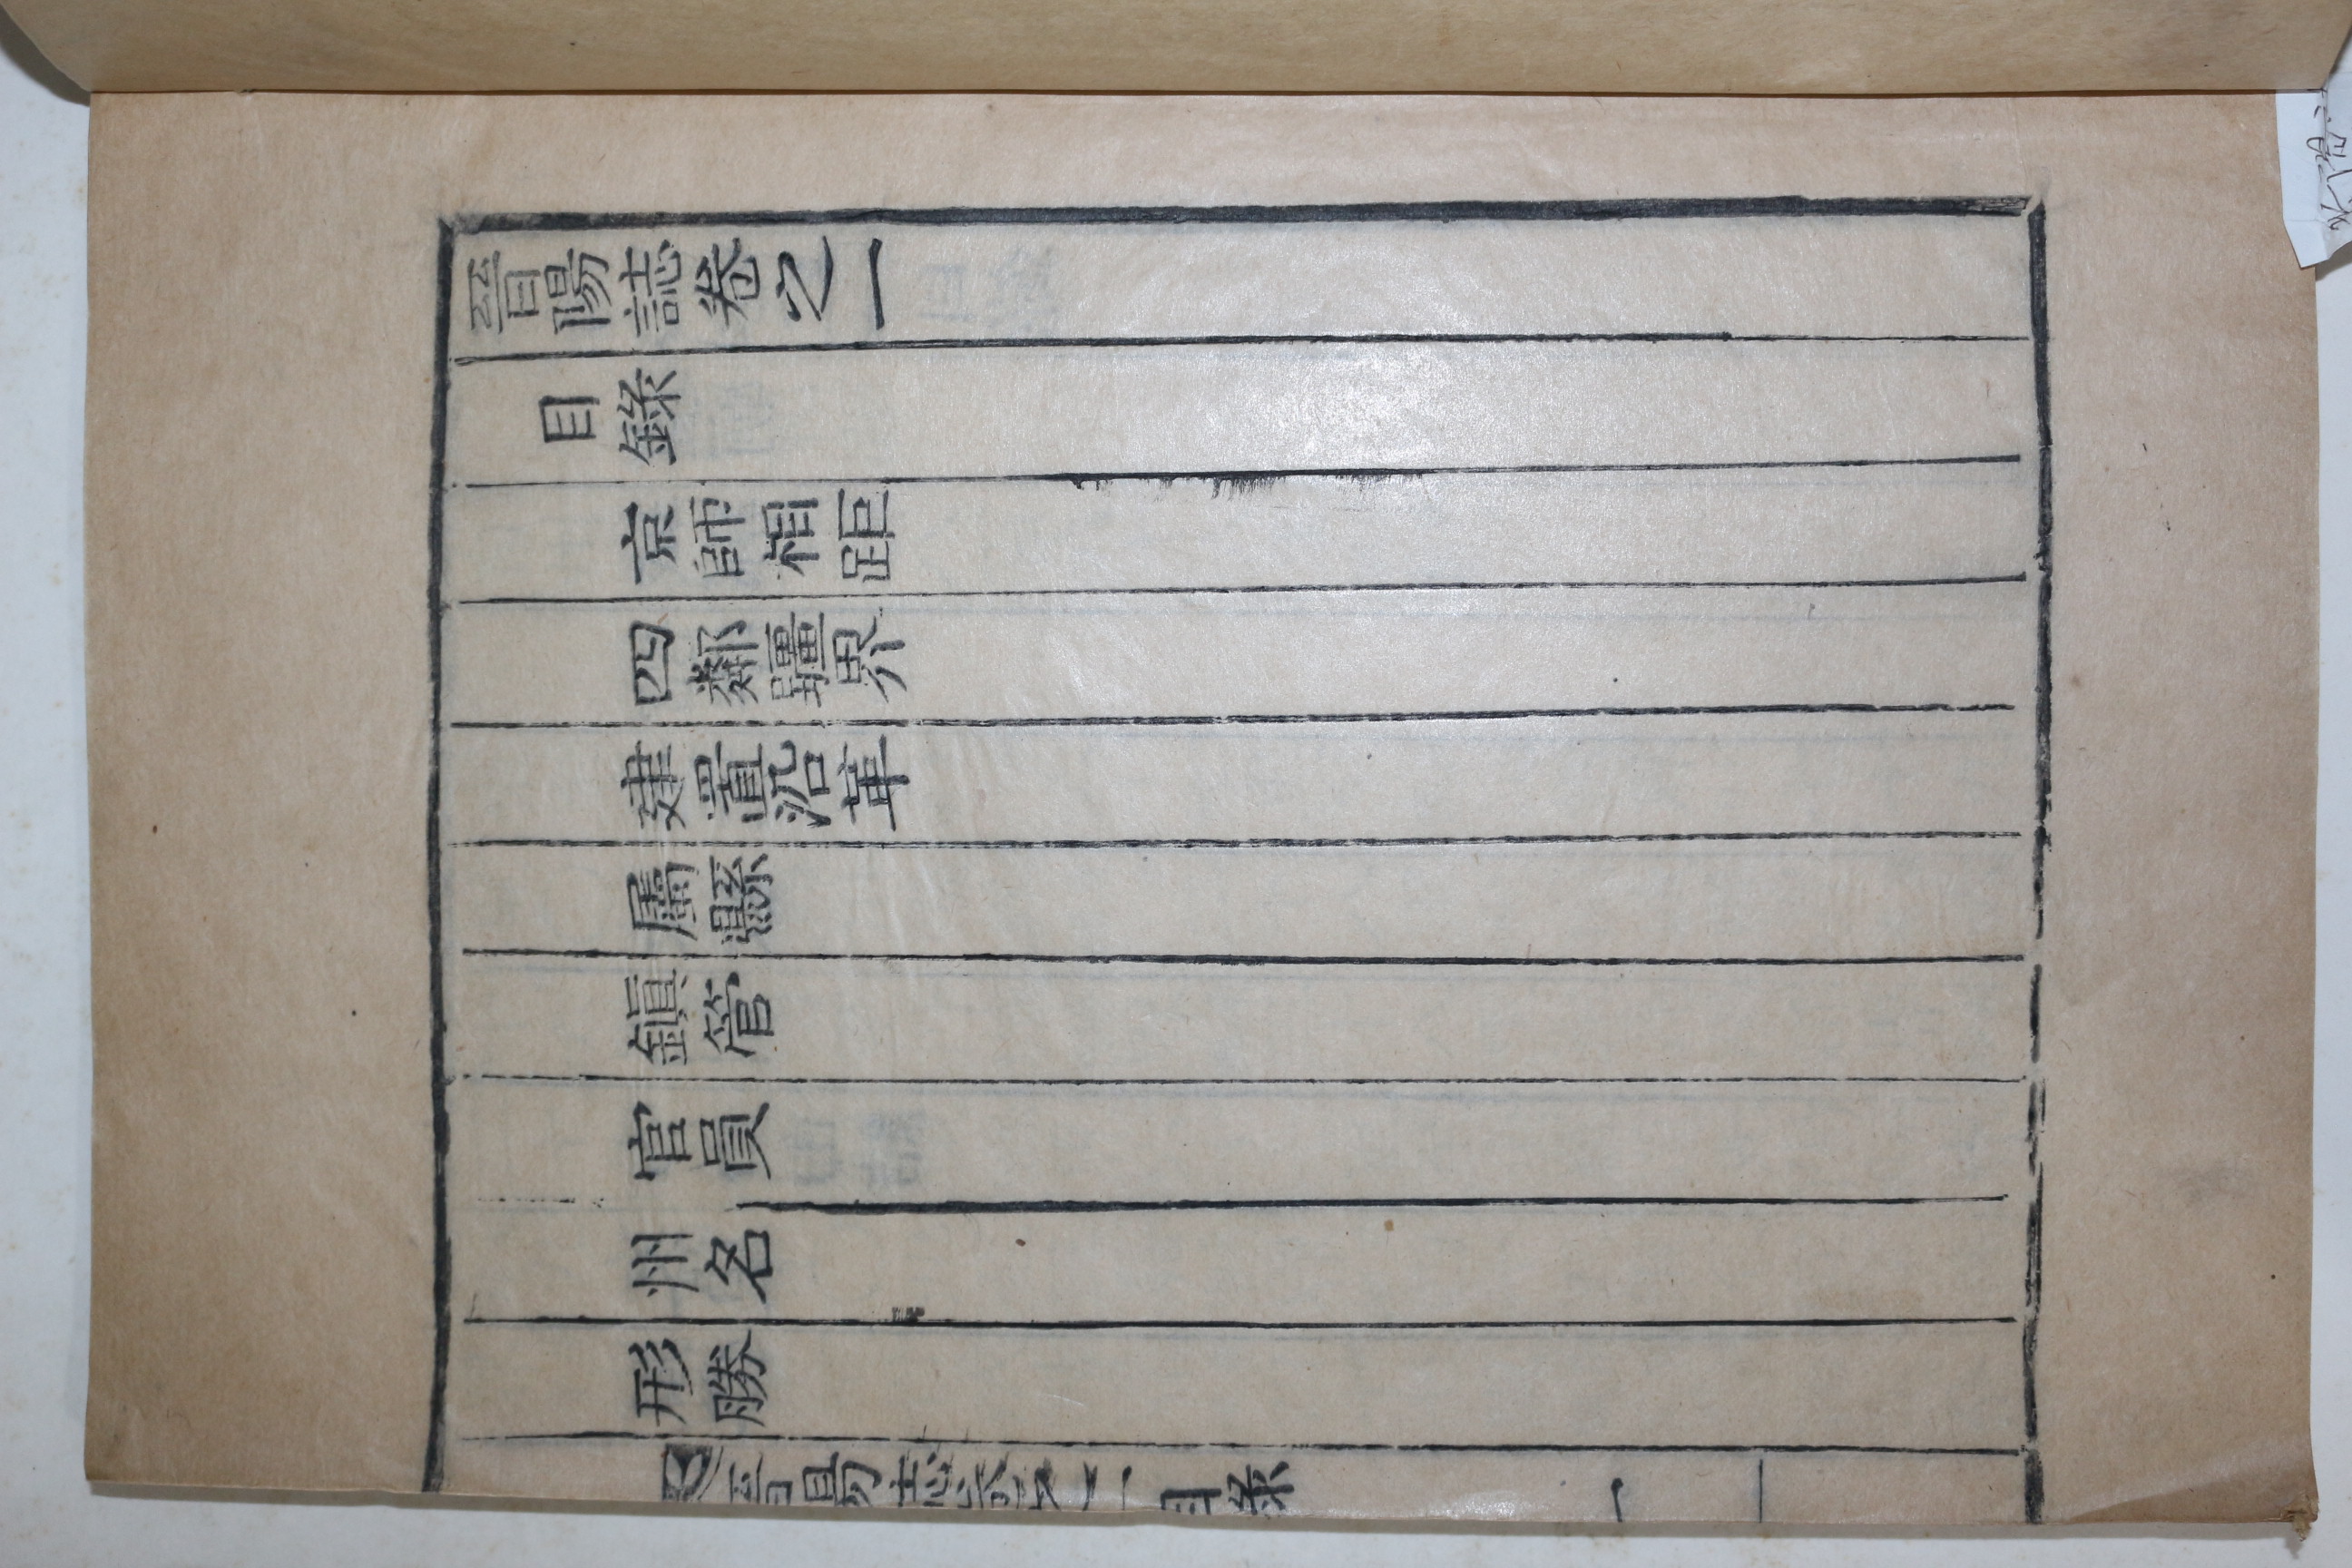 晉陽誌卷之一
目錄
京師相距
四鄰疆界
建置沿革
屬縣
鎭管
官員
州名
形勝
晉陽誌卷之一 目錄 一